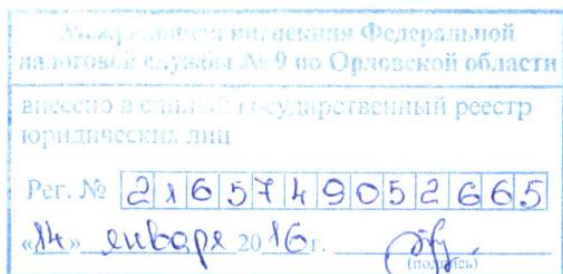 Межрайонная инспекция Федеральной
налоговой службы № 9 по Орловской области
внесено в единый государственный реестр
юридических лиц
Рег. № 2165749052665
«14» января 2016 г.
(подпись)